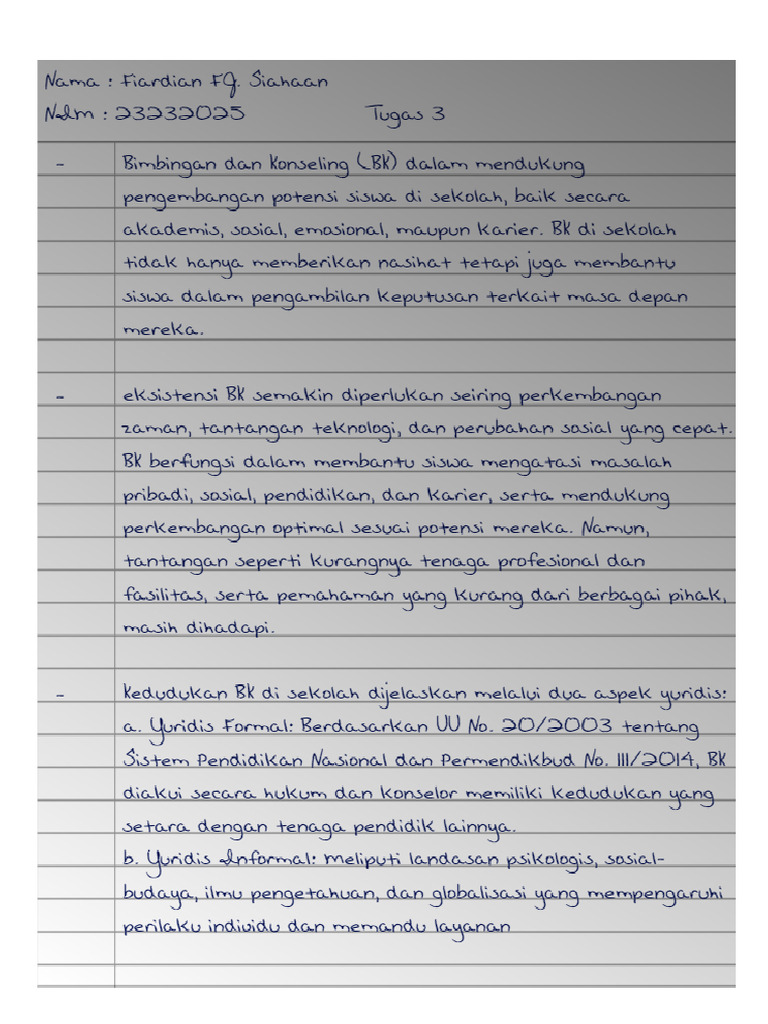 Nama : Fiardian FG. Siahaan
NIm : 23232025 Tugas 3
- Bimbingan dan Konseling (BK) dalam mendukung
pengembangan potensi siswa di sekolah, baik secara
akademis, sosial, emosional, maupun karier. BK di sekolah
tidak hanya memberikan nasihat tetapi juga membantu
siswa dalam pengambilan keputusan terkait masa depan
mereka.
- eksistensi BK semakin diperlukan seiring perkembangan
zaman, tantangan teknologi, dan perubahan sosial yang cepat.
BK berfungsi dalam membantu siswa mengatasi masalah
pribadi, sosial, pendidikan, dan karier, serta mendukung
perkembangan optimal sesuai potensi mereka. Namun,
tantangan seperti kurangnya tenaga profesional dan
fasilitas, serta pemahaman yang kurang dari berbagai pihak,
masih dihadapi.
- kedudukan BK di sekolah dijelaskan melalui dua aspek yuridis:
a. Yuridis Formal: Berdasarkan UU No. 20/2003 tentang
Sistem Pendidikan Nasional dan Permendikbud No. 111/2014, BK
diakui secara hukum dan konselor memiliki kedudukan yang
setara dengan tenaga pendidik lainnya.
b. Yuridis Informal: meliputi landasan psikologis, sosial-
budaya, ilmu pengetahuan, dan globalisasi yang mempengaruhi
perilaku individu dan memandu layanan